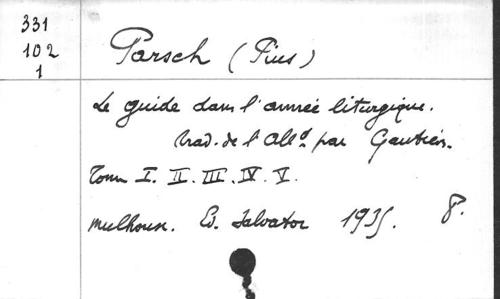 331
102
1
Parsch (Pius)
Le guide dans l'année liturgique.
trad. de l'Alld. par Gautier.
Tome I. II. III. IV. V.
Mulhouse. Ed. Salvator 1935. 8.